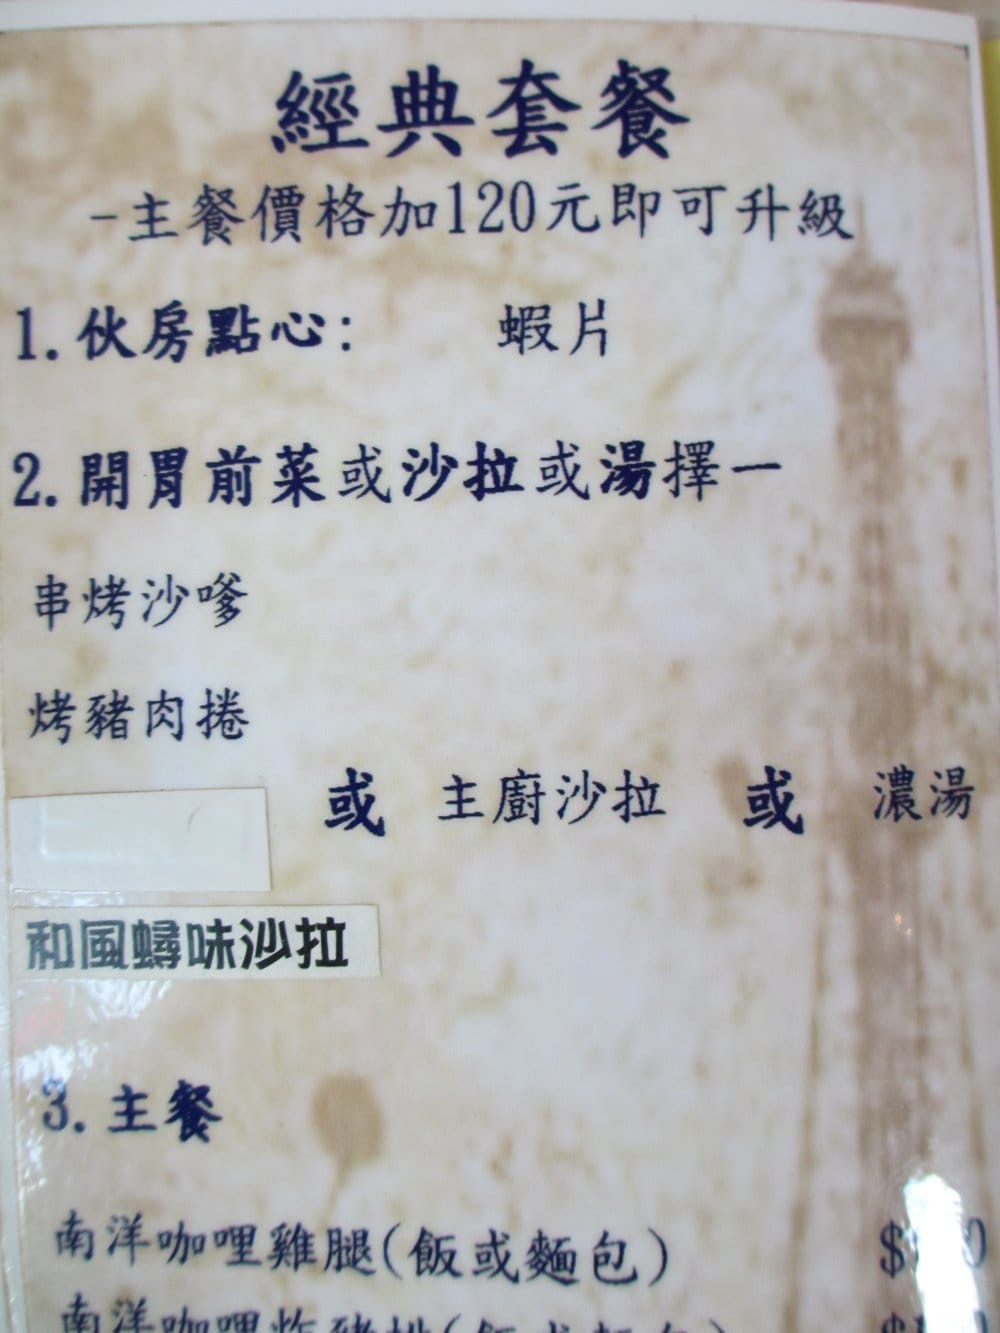 經典套餐
-主餐價格加120元即可升級
1.伙房點心: 蝦片
2.開胃前菜或沙拉或湯擇一
串烤沙嗲
烤豬肉捲
或 主廚沙拉 或 濃湯
和風蟳味沙拉
3.主餐
南洋咖哩雞腿(飯或麵包)
南洋咖哩炸豬排(飯或麵包)